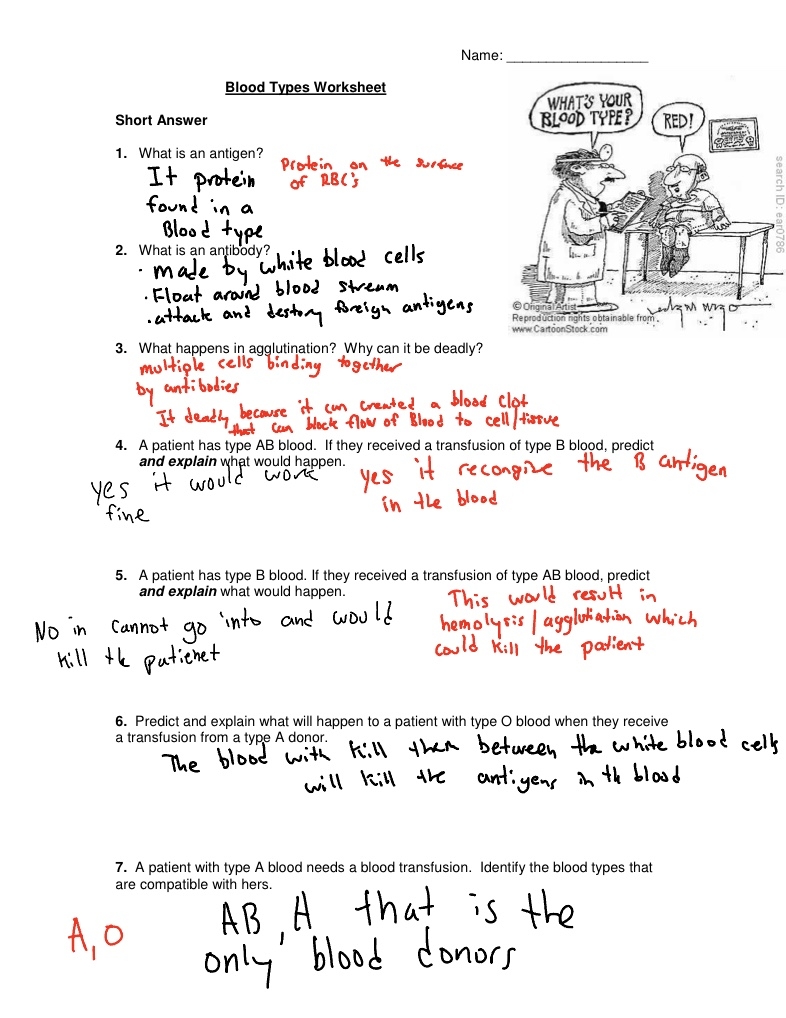 Name: ___________________
Blood Types Worksheet
WHAT'S YOUR
BLOOD TYPE?
RED!
search ID: ear0786
© Original Artist
Reproduction rights obtainable from
www.CartoonStock.com
Short Answer
1. What is an antigen?
It protein
found in a
Blood type
Protein on the surface
of RBC's
2. What is an antibody?
· made by white blood cells
· Float around blood stream
· attack and destory foreign antigens
3. What happens in agglutination? Why can it be deadly?
multiple cells binding together
by antibodies
It deadly because it can created a blood clot
that can block flow of Blood to cell/tissue
4. A patient has type AB blood. If they received a transfusion of type B blood, predict
and explain what would happen.
yes it would work
fine
yes it recongize the B antigen
in the blood
5. A patient has type B blood. If they received a transfusion of type AB blood, predict
and explain what would happen.
No in cannot go into and would
kill the patienet
This would result in
hemolysis/agglutiation which
could kill the patient
6. Predict and explain what will happen to a patient with type O blood when they receive
a transfusion from a type A donor.
The blood with kill them between the white blood cells
will kill the antigens in the blood
7. A patient with type A blood needs a blood transfusion. Identify the blood types that
are compatible with hers.
A, O
AB, A that is the
only blood donors